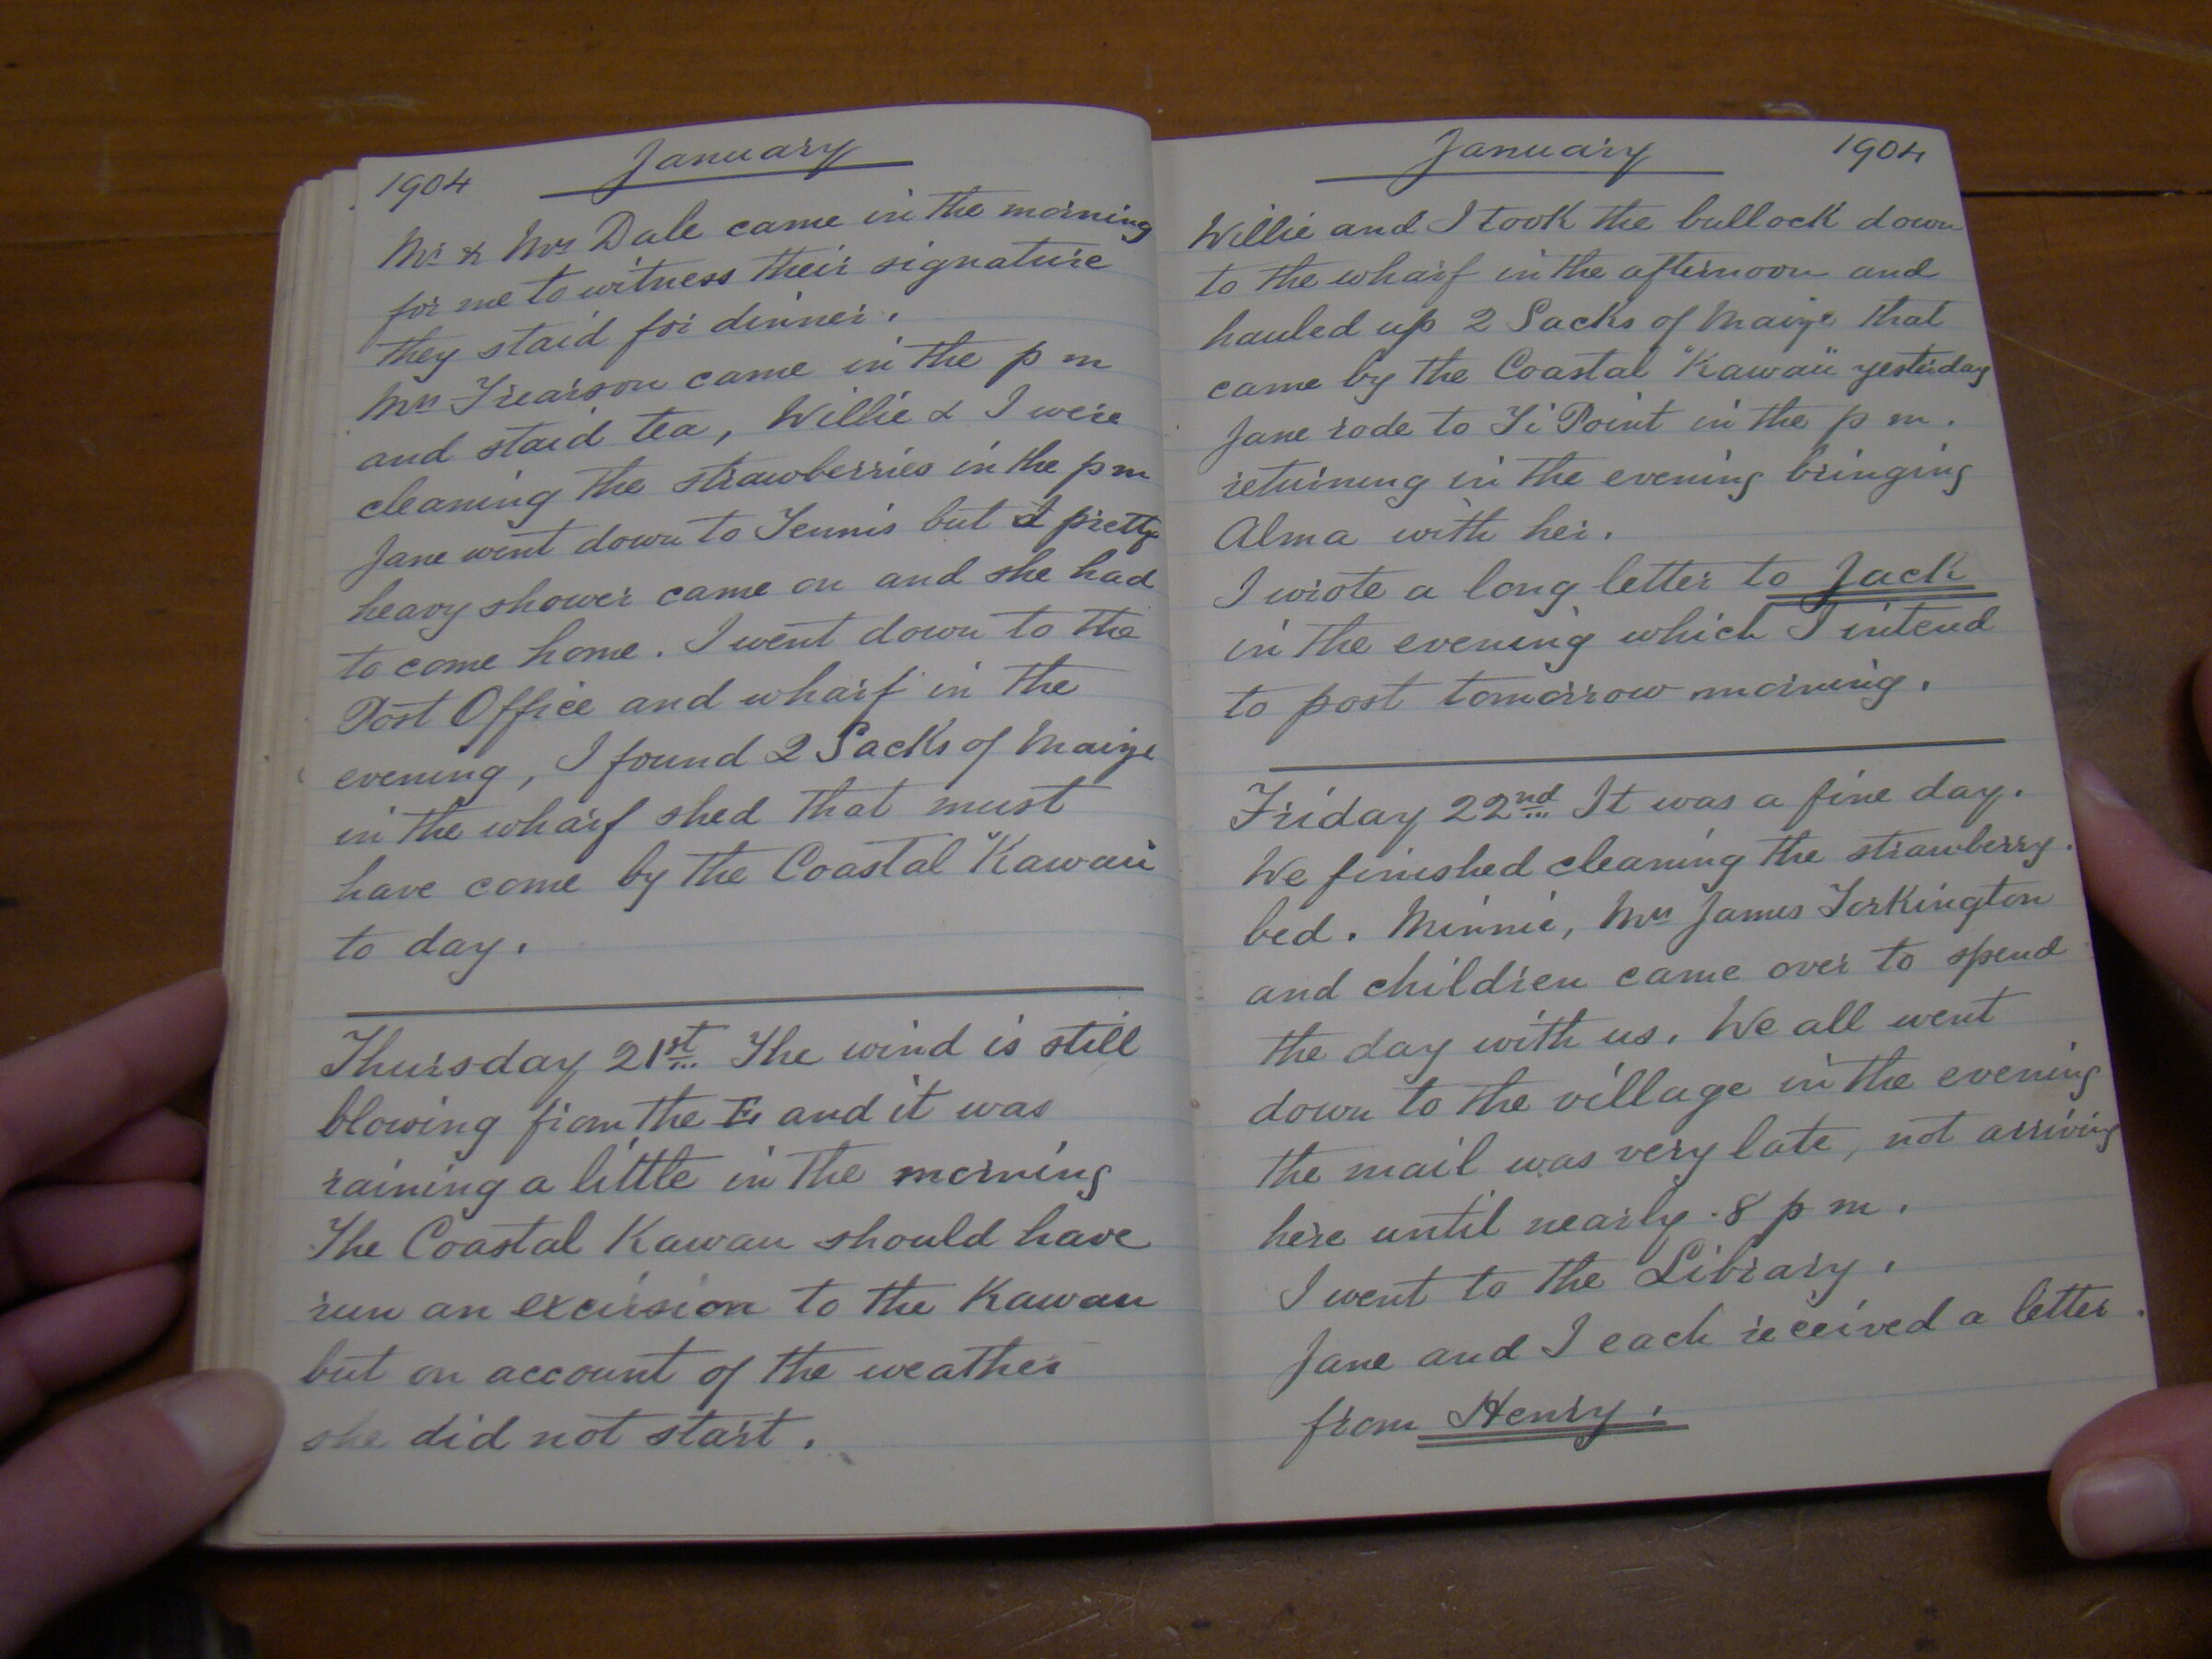 1904 January
Mr & Mrs Dale came in the morning
for me to witness their signature
they staid for dinner.
Mrs Frearson came in the p m
and staid tea, Willie & I were
cleaning the strawberries in the p m
Jane went down to Tennis but a pretty
heavy shower came on and she had
to come home. I went down to the
Post Office and wharf in the
evening, I found 2 Sacks of Maize
in the wharf shed that must
have come by the Coastal "Kawau
to day.
Thursday 21st The wind is still
blowing from the E and it was
raining a little in the morning
The Coastal Kawau should have
run an excursion to the Kawau
but on account of the weather
she did not start.
January 1904
Willie and I took the bullock down
to the wharf in the afternoon and
hauled up 2 Sacks of Maize that
came by the Coastal "Kawau" yesterday
Jane rode to Ti Point in the p m.
returning in the evening bringing
Alma with her.
I wrote a long letter to Jack
in the evening which I intend
to post tomorrow morning.
Friday 22nd It was a fine day.
We finished cleaning the strawberry
bed. Minnie, Mrs James Torkington
and children came over to spend
the day with us. We all went
down to the village in the evening
the mail was very late, not arriving
here until nearly 8 p m.
I went to the Library.
Jane and I each received a letter
from Henry.